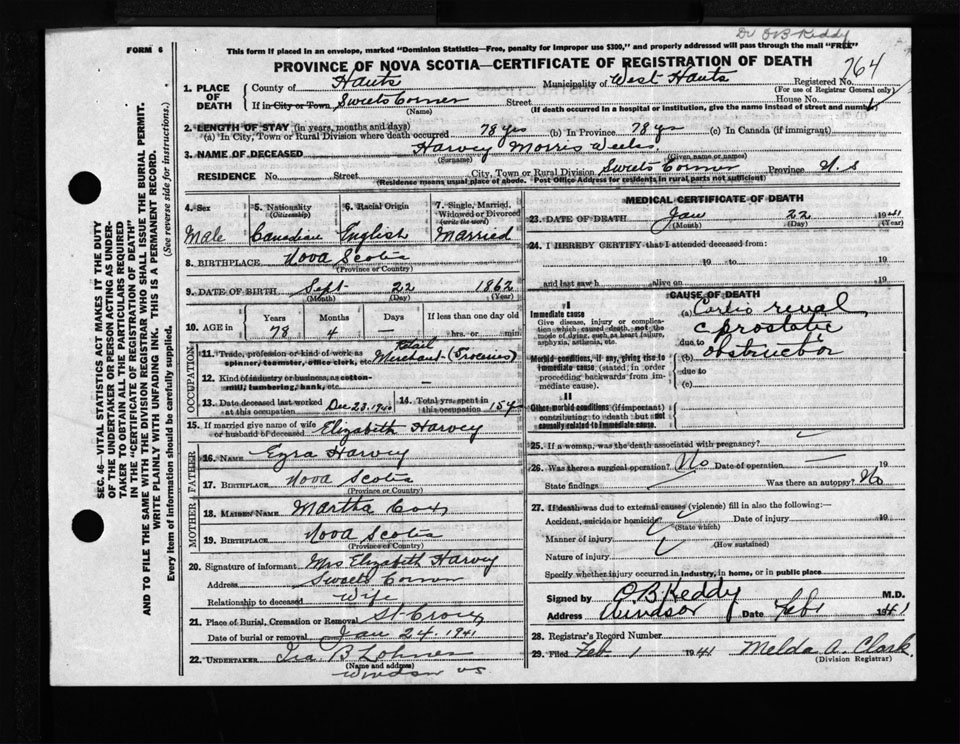 Dr O B Keddy
FORM 6
This form if placed in an envelope, marked "Dominion Statistics—Free, penalty for improper use $300," and properly addressed will pass through the mail "FREE"
PROVINCE OF NOVA SCOTIA—CERTIFICATE OF REGISTRATION OF DEATH
764
SEC. 46—VITAL STATISTICS ACT MAKES IT THE DUTY
OF THE UNDERTAKER OR PERSON ACTING AS UNDER-
TAKER TO OBTAIN ALL THE PARTICULARS REQUIRED
IN THE "CERTIFICATE OF REGISTRATION OF DEATH"
AND TO FILE THE SAME WITH THE DIVISION REGISTRAR WHO SHALL ISSUE THE BURIAL PERMIT.
WRITE PLAINLY WITH UNFADING INK. THIS IS A PERMANENT RECORD.
(See reverse side for instructions.)
Every item of information should be carefully supplied.
1. PLACE OF DEATH
County of Hants Municipality of West Hants Registered No.
(For use of Registrar General only)
If in City or Town Sweets Corner Street House No.
(Name) (If death occurred in a hospital or institution, give the name instead of street and number)
2. LENGTH OF STAY (in years, months and days)
(a) In City, Town or Rural Division where death occurred 78 yrs (b) In Province 78 yrs (c) In Canada (if immigrant)
3. NAME OF DECEASED Harvey Morris Weeks
(Surname) (Given name or names)
RESIDENCE No. Street City, Town or Rural Division Sweets Corner Province N.S
(Residence means usual place of abode. Post Office Address for residents in rural parts not sufficient)
4. Sex 5. Nationality (Citizenship) 6. Racial Origin 7. Single, Married, Widowed or Divorced (write the word)
Male Canadian English Married
8. BIRTHPLACE Nova Scotia
(Province or Country)
9. DATE OF BIRTH Sept 22 1862
(Month) (Day) (Year)
10. AGE in Years Months Days If less than one day old
78 4 — hrs. or min.
OCCUPATION
11. Trade, profession or kind of work as spinner, teamster, office clerk, etc. Retail Merchant (Groceries)
12. Kind of industry or business, as cotton-mill, lumbering, bank, etc. —
13. Date deceased last worked at this occupation Dec 23, 1940 14. Total yrs. spent in this occupation 15 y
15. If married give name of wife or husband of deceased Elizabeth Harvey
FATHER
16. NAME Ezra Harvey
17. BIRTHPLACE Nova Scotia
(Province or Country)
MOTHER
18. MAIDEN NAME Martha Cox
19. BIRTHPLACE Nova Scotia
(Province or Country)
20. Signature of informant Mrs Elizabeth Harvey
Address Sweets Corner
Relationship to deceased Wife
21. Place of Burial, Cremation or Removal St Croix
Date of burial or removal Jan 24, 1941
22. UNDERTAKER Ira B Lohnes
(Name and address)
Windsor NS
MEDICAL CERTIFICATE OF DEATH
23. DATE OF DEATH Jan 22 1941
(Month) (Day) (Year)
24. I HEREBY CERTIFY that I attended deceased from:
19 to 19
and last saw h alive on 19
CAUSE OF DEATH
I
Immediate cause
Give disease, injury or complica-
tion which caused death, not the
mode of dying, such as heart failure,
asphyxia, asthenia, etc.
(a) Cardio renal
c prostatic
due to
(b) obstruction
Morbid conditions, if any, giving rise to
immediate cause (stated in order
proceeding backwards from im-
mediate cause).
due to
(c)
II
Other morbid conditions (if important)
contributing to death but not
causally related to immediate cause.
25. If a woman, was the death associated with pregnancy?
26. Was there a surgical operation? No Date of operation 19
State findings Was there an autopsy? No
27. If death was due to external causes (violence) fill in also the following:—
Accident, suicide or homicide Date of injury 19
(State which)
Manner of injury
(How sustained)
Nature of injury
Specify whether injury occurred in industry, in home, or in public place
Signed by O B Keddy M.D.
Address Windsor Date Feb 1 1941
28. Registrar's Record Number
29. Filed Feb. 1 1941 Melda A. Clark.
(Division Registrar)